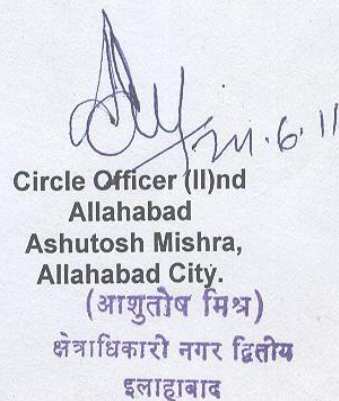 6.11
Circle Officer (II)nd
Allahabad
Ashutosh Mishra,
Allahabad City.
(आशुतोष मिश्र)
क्षेत्राधिकारी नगर द्वितीय
इलाहाबाद